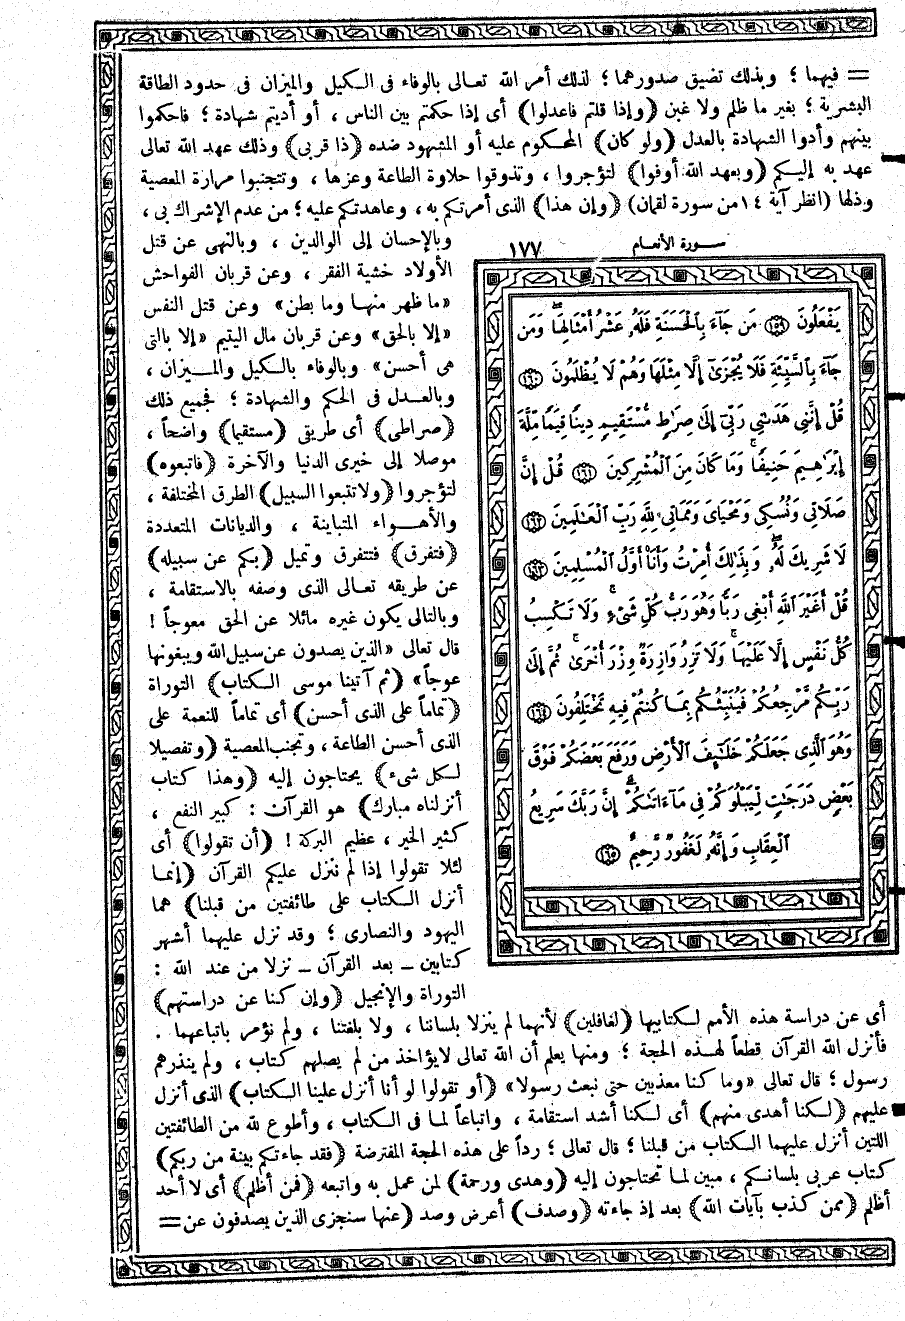 = فيهما ؛ وبذلك تضيق صدورهما ؛ لذلك أمر الله تعالى بالوفاء فى الكيل والميزان فى حدود الطاقة
البشرية ؛ بغير ما ظلم ولا غبن (وإذا قلتم فاعدلوا) أى إذا حكمتم بين الناس ، أو أديتم شهادة ؛ فاحكموا
بينهم وأدوا الشهادة بالعدل (ولو كان) المحكوم عليه أو المشهود ضده (ذا قربى) وذلك عهد الله تعالى
عهد به إليكم (وبعهد الله أوفوا) لتؤجروا ، وتذوقوا حلاوة الطاعة وعزها ، وتتجنبوا مرارة المعصية
وذلها (انظر آية ١٤ من سورة لقمان) (وإن هذا) الذى أمرتكم به ، وعاهدتكم عليه ؛ من عدم الإشراك بى ،
سورة الأنعام
١٧٧
يَفْعَلُونَ ﴿١٥٩﴾ مَن جَآءَ بِٱلْحَسَنَةِ فَلَهُۥ عَشْرُ أَمْثَالِهَا ۖ وَمَن
جَآءَ بِٱلسَّيِّئَةِ فَلَا يُجْزَىٰٓ إِلَّا مِثْلَهَا وَهُمْ لَا يُظْلَمُونَ ﴿١٦٠﴾
قُلْ إِنَّنِى هَدَىٰنِى رَبِّىٓ إِلَىٰ صِرَٰطٍ مُّسْتَقِيمٍ دِينًا قِيَمًا مِّلَّةَ
إِبْرَٰهِيمَ حَنِيفًا ۚ وَمَا كَانَ مِنَ ٱلْمُشْرِكِينَ ﴿١٦١﴾ قُلْ إِنَّ
صَلَاتِى وَنُسُكِى وَمَحْيَاىَ وَمَمَاتِى لِلَّهِ رَبِّ ٱلْعَٰلَمِينَ ﴿١٦٢﴾
لَا شَرِيكَ لَهُۥ ۖ وَبِذَٰلِكَ أُمِرْتُ وَأَنَا۠ أَوَّلُ ٱلْمُسْلِمِينَ ﴿١٦٣﴾
قُلْ أَغَيْرَ ٱللَّهِ أَبْغِى رَبًّا وَهُوَ رَبُّ كُلِّ شَىْءٍ ۚ وَلَا تَكْسِبُ
كُلُّ نَفْسٍ إِلَّا عَلَيْهَا ۚ وَلَا تَزِرُ وَازِرَةٌ وِزْرَ أُخْرَىٰ ۚ ثُمَّ إِلَىٰ
رَبِّكُم مَّرْجِعُكُمْ فَيُنَبِّئُكُم بِمَا كُنتُمْ فِيهِ تَخْتَلِفُونَ ﴿١٦٤﴾
وَهُوَ ٱلَّذِى جَعَلَكُمْ خَلَٰٓئِفَ ٱلْأَرْضِ وَرَفَعَ بَعْضَكُمْ فَوْقَ
بَعْضٍ دَرَجَٰتٍ لِّيَبْلُوَكُمْ فِى مَآ ءَاتَىٰكُمْ ۗ إِنَّ رَبَّكَ سَرِيعُ
ٱلْعِقَابِ وَإِنَّهُۥ لَغَفُورٌ رَّحِيمٌۢ ﴿١٦٥﴾
وبالإحسان إلى الوالدين ، وبالنهى عن قتل
الأولاد خشية الفقر ، وعن قربان الفواحش
«ما ظهر منها وما بطن» وعن قتل النفس
«إلا بالحق» وعن قربان مال اليتيم «إلا بالتى
هى أحسن» وبالوفاء بالكيل والميزان ،
وبالعدل فى الحكم والشهادة ؛ فجميع ذلك
(صراطى) أى طريقى (مستقيما) واضحاً ،
موصلا إلى خيرى الدنيا والآخرة (فاتبعوه)
لتؤجروا (ولا تتبعوا السبيل) الطرق المختلفة ،
والأهواء المتباينة ، والديانات المتعددة
(فتفرق) فتتفرق وتميل (بكم عن سبيله)
عن طريقه تعالى الذى وصفه بالاستقامة ،
وبالتالى يكون غيره مائلا عن الحق معوجاً !
قال تعالى «الذين يصدون عن سبيل الله ويبغونها
عوجاً» (ثم آتينا موسى الكتاب) التوراة
(تماماً على الذى أحسن) أى تماماً للنعمة على
الذى أحسن الطاعة ، وتجنب المعصية (وتفصيلا
لكل شىء) يحتاجون إليه (وهذا كتاب
أنزلناه مبارك) هو القرآن : كبير النفع ،
كثير الخير ، عظيم البركة ! (أن تقولوا) أى
لئلا تقولوا إذا لم ننزل عليكم القرآن (إنما
أنزل الكتاب على طائفتين من قبلنا) هما
اليهود والنصارى ؛ وقد نزل عليهما أشهر
كتابين ــ بعد القرآن ــ نزلا من عند الله :
التوراة والإنجيل (وإن كنا عن دراستهم)
أى عن دراسة هذه الأمم لكتابيها (لغافلين) لأنهما لم ينزلا بلساننا ، ولا بلغتنا ، ولم نؤمر باتباعهما .
فأنزل الله القرآن قطعاً لهذه الحجة ؛ ومنها يعلم أن الله تعالى لا يؤاخذ من لم يصلهم كتاب ، ولم ينذرهم
رسول ؛ قال تعالى «وما كنا معذبين حتى نبعث رسولا» (أو تقولوا لو أنا أنزل علينا الكتاب) الذى أنزل
عليهم (لكنا أهدى منهم) أى لكنا أشد استقامة ، واتباعاً لما فى الكتاب ، وأطوع لله من الطائفتين
اللتين أنزل عليهما الكتاب من قبلنا ؛ قال تعالى ؛ رداً على هذه الحجة المفترضة (فقد جاءتكم بينة من ربكم)
كتاب عربى بلسانكم ، مبين لما تحتاجون إليه (وهدى ورحمة) لمن عمل به واتبعه (فمن أظلم) أى لا أحد
أظلم (ممن كذب بآيات الله) بعد إذ جاءته (وصدف) أعرض وصد (عنها سنجزى الذين يصدفون عن =